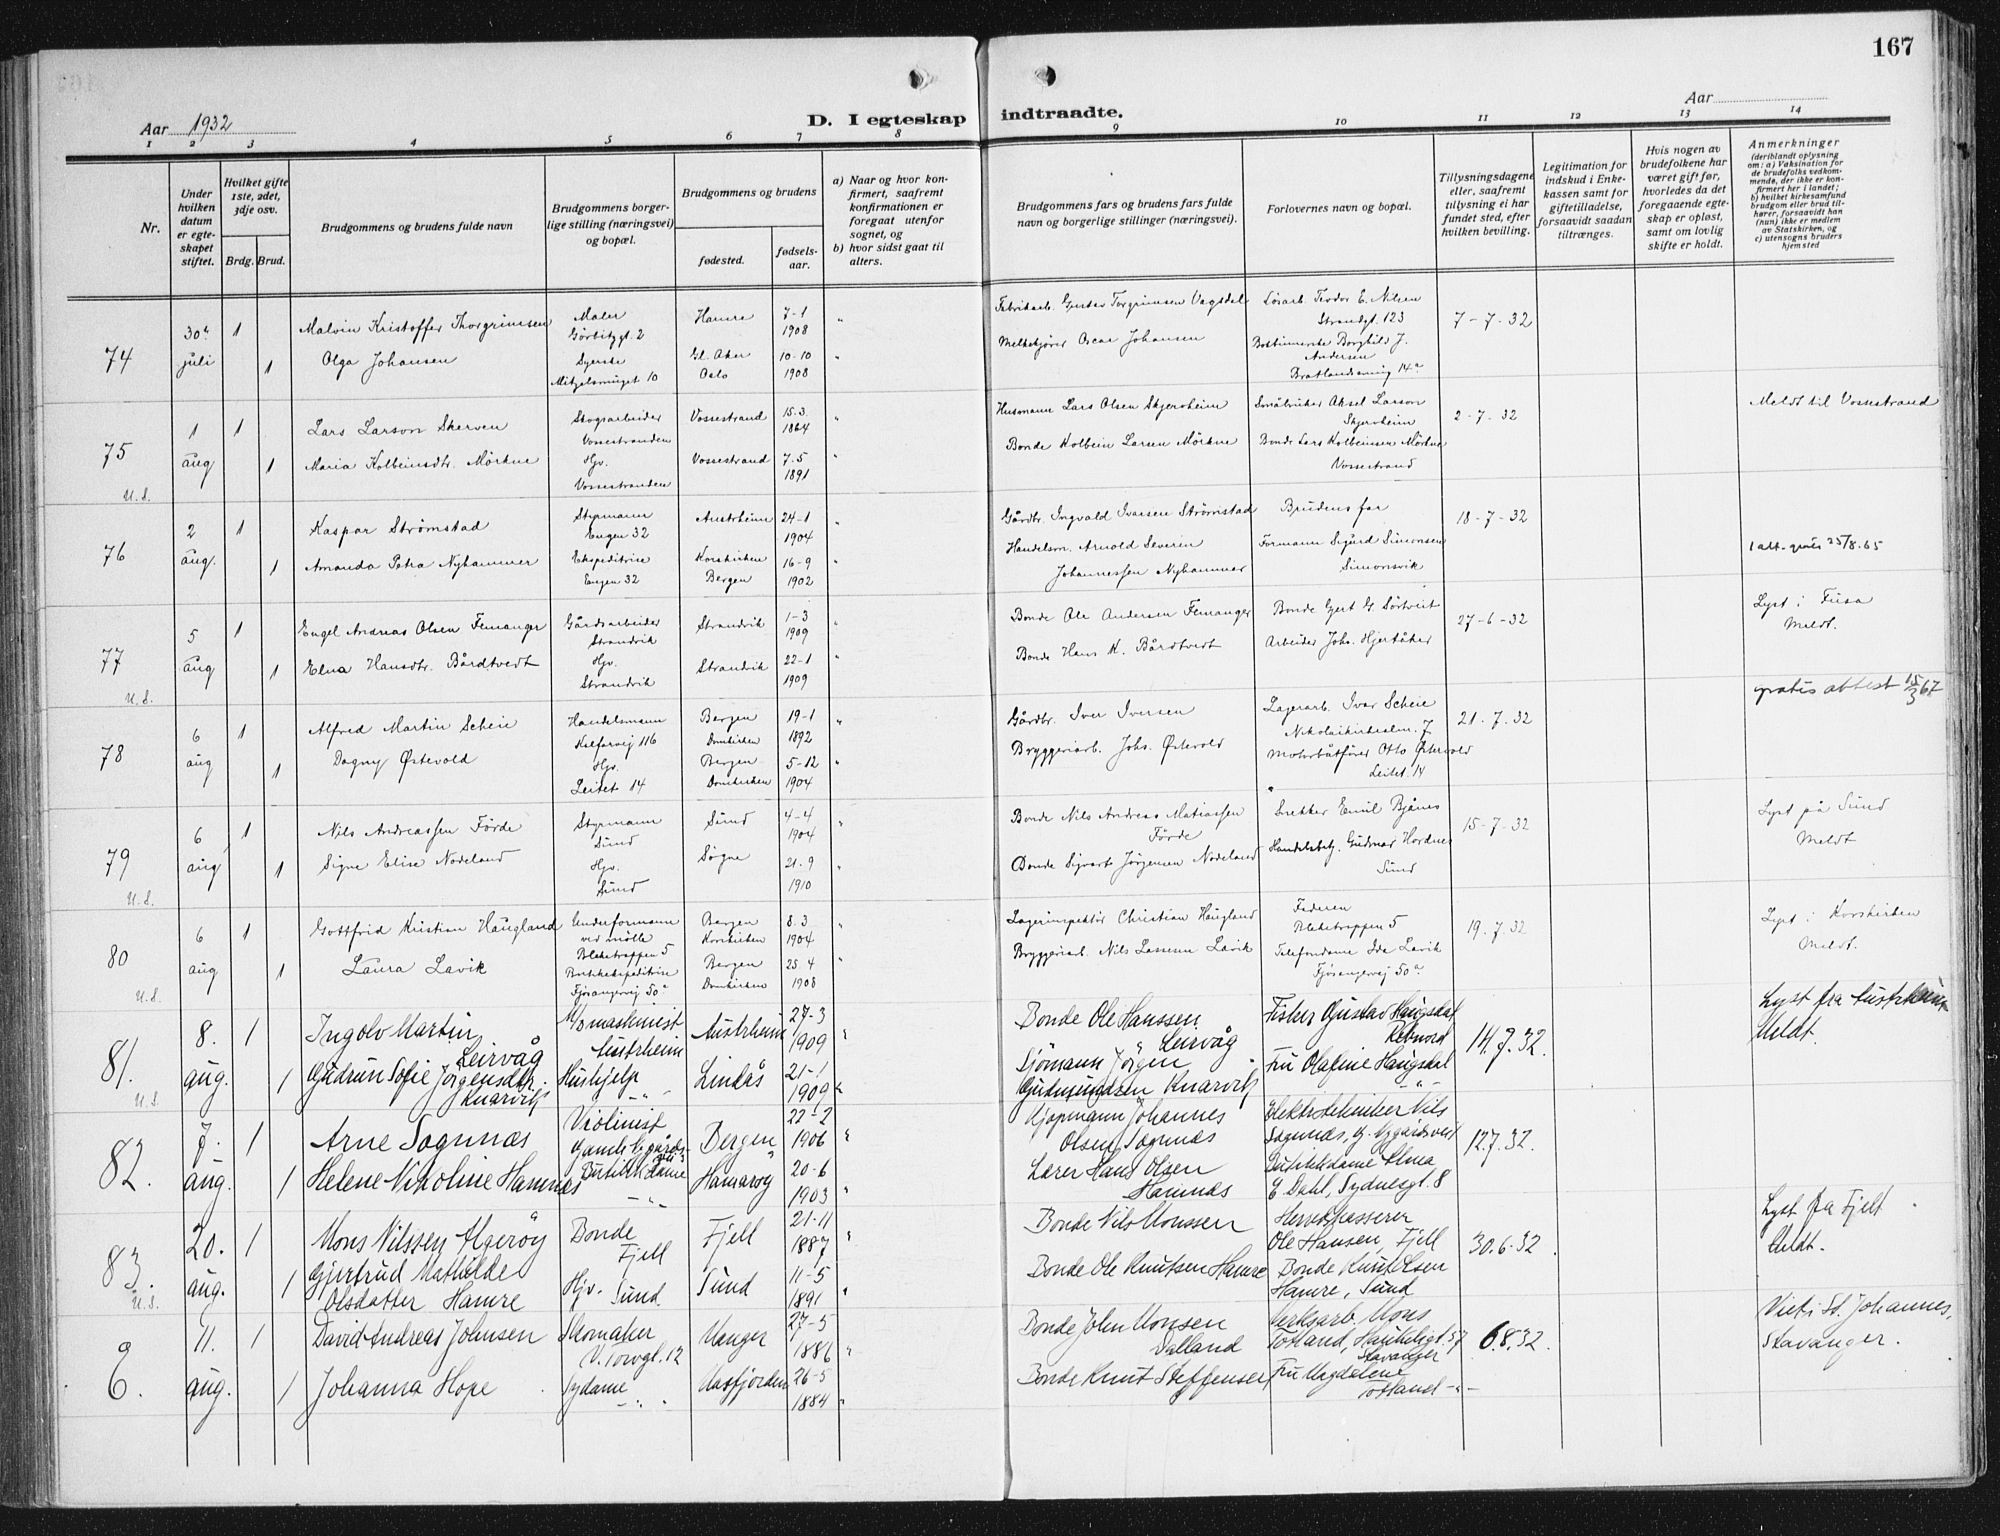 167
Aar 1932
D. I egteskap indtraadte.
Aar
1 2 3 4 5 6 7 8 9 10 11 12 13 14
Nr.
Under hvilken datum er egteskapet stiftet.
Hvilket gifte 1ste, 2det, 3dje osv.
Brdg. Brud.
Brudgommens og brudens fulde navn
Brudgommens borgerlige stilling (næringsvei) og bopæl.
Brudgommens og brudens
fødested.
fødselsaar.
a) Naar og hvor konfirmert, saafremt konfirmationen er foregaat utenfor sognet, og
b) hvor sidst gaat til alters.
Brudgommens fars og brudens fars fulde navn og borgerlige stillinger (næringsvei).
Forlovernes navn og bopæl.
Tillysningsdagene eller, saafremt tillysning ei har fundet sted, efter hvilken bevilling.
Legitimation for indskud i Enkekassen samt for giftetilladelse, forsaavidt saadan tiltrænges.
Hvis nogen av brudefolkene har været gift før, hvorledes da det foregaaende egteskap er opløst, samt om lovlig skifte er holdt.
Anmerkninger
(deriblandt oplysning om: a) Vaksination for de brudefolks vedkommende, der ikke er konfirmert her i landet; b) hvilket kirkesamfund brudgom eller brud tilhører, forsaavidt han (hun) ikke er medlem av Statskirken, og c) utensogns bruders hjemsted
74 30te juli 1 Malvin Kristoffer Thorgrimsen Maler Hamre 7-1 1908 " Fabrikarb. Gustav Torgrimsen Vagsdal Teodor E. Nilsen Strandgt. 123 7-7-32
1 Olga Johansen Syerske Gl. Aker Oslo 10-10 1908 " Melkekjører Oscar Johansen Borghild J. Andersen 14a
75 U.S. 1 aug 1 Lars Larson Skerven Skogsarbeider Vossestranden Vossestrand 15.3. 1864 " Husmann Lars Olsen Skjerveheim Småbruker Aksel Larson Skjerveheim 2-7-32 Meldt til Vossestrand
1 Maria Kolbeinsdtr. Mörkne Hjv. Vossestranden Vossestrand 7-5 1891 " Bonde Kolbein Larsen Mörkne Bonde Lars Kolbeinsen Mörkne Vossestrand
76 2 aug. 1 Kaspar Strømstad Styrmann Engen 32 Austrheim 24-1 1904 " Gårdbr. Ingvald Ivarsen Strømstad Brudens far 18-7-32
1 Amanda Petra Nyhammer Ekspeditrise Engen 32 Korskirken Bergen 16-9 1902 Handelsm. Arnold Severin Johannessen Nyhammer Formann Sigurd Simonsen Simonsvik 1 att. gratis 25/8.65
77 U.S. 5 aug 1 Engel Andreas Olsen Femanger Gårdsarbeider Strandvik Strandvik 1-3 1909 " Bonde Ole Andersen Femanger Bonde Gert G. Sørtveit 27-6-32 Lyst i Fusa Meldt.
1 Elna Hansdtr. Bårdtvedt Hjv. Strandvik Strandvik 22-1 1909 " Bonde Hans K. Bårdtvedt Arbeider Johs. Hjertåker
78 6 aug 1 Alfred Martin Scheie Handelsmann Kalfarvej 116 Bergen Domkirken 19-1 1892 " Gårdbr. Iver Iversen Lagerarb. Ivar Scheie Nikolaikirkealm. 7 21.7.32 gratis attest 15/3 67
1 Dagny Østevold Hjv. Leitet 14 Bergen Domkirken 5-12 1904 " Bryggeriarb. Johs. Østevold Motorbåtfører Otto Østevold Leitet. 14
79 U.S. 6 aug 1 Nils Andreassen Førde Styrmann Sund Sund 4-4 1904 " Bonde Nils Andreas Matiassen Førde Snekker Emil Bjånes 15-7-32 Lyst på Sund Meldt
1 Signe Elise Nodeland Hjv. Sund Søgne 21-9 1910 " Bonde Sigvart Jörgensen Nodeland Handelsbetj. Gudmar Hordnes Sund
80 U.S. 6 aug 1 Gottfrid Kristian Haugland Underformann ved mölle Bleketrappen 5 Bergen Korskirken 8.3 1904 " Lagerinspektør Christian Haugland Faderen Blekетrappen 5 19.7.32 Lyst i Korskirken Meldt.
1 Laura Lavik Butikkekspeditrise Fjøsangervej 50a Bergen Domkirken 25.4 1908 " Bryggeriarb. Nils Lassenn Lavik Telefondame Ida Lavik Fjøsangervej 50a
81. U.S. 8. aug. 1 Ingolv Martin Leirvåg Austrheim Austrheim 27-3 1909 " Bonde Ole Hanssen Leirvåg Fisker Gustav Haugsdal 14.7.32. Lyst fra Austrheim Meldt.
1 Gudrun Sofie Jörgensdtr. Knarvik Hushjelp -"- Lindås 21-1 1909 " Sjömann Jörgen Gudmundsen Knarvik Fru Olafine Haugsdal -"-
82. 7. aug. 1 Arne Sognnæs Violinist Bergen 22-2 1906 " Kjøpmann Johannes Olsen Sognnæs Elektrotekniker Nils Sognnæs, 12.7.32.
1 Helene Nikoline Hamnæs Butikkdame -"- Hamarøy 20-6 1903 " Lærer Hans Olsen Hamnæs Butikkdame Alma E Dahl, Sydnesgt. 8
83. U.S. 20. aug. 1 Mons Nilssen Algerøy Bonde Fjell Fjell 21-11 1887 " Bonde Nils Monssen Herredskasserer Ole Hansen, Fjell 30.6.32. Lyst fra Fjell Meldt.
1 Gjertrud Mathilde Olsdatter Hamre Hjv. Sund Sund 11-5 1891 " Bonde Ole Knutsen Hamre Bonde Knut Olsen Hamre, Sund
6. 11. aug. 1 David Andreas Johnsen Skomaker V. Torvgt. 12 Manger 27-5 1886 " Bonde John Monsen Dalland Verksarb. Mons Totland, Haukeligt. 57 Stavanger 6.8.32 Viet i St. Johannes, Stavanger.
1 Johanna Hope Sydame -"- Masfjorden 26-5 1884 " Bonde Knut Steffensen Fru Magdalene Totland -"-